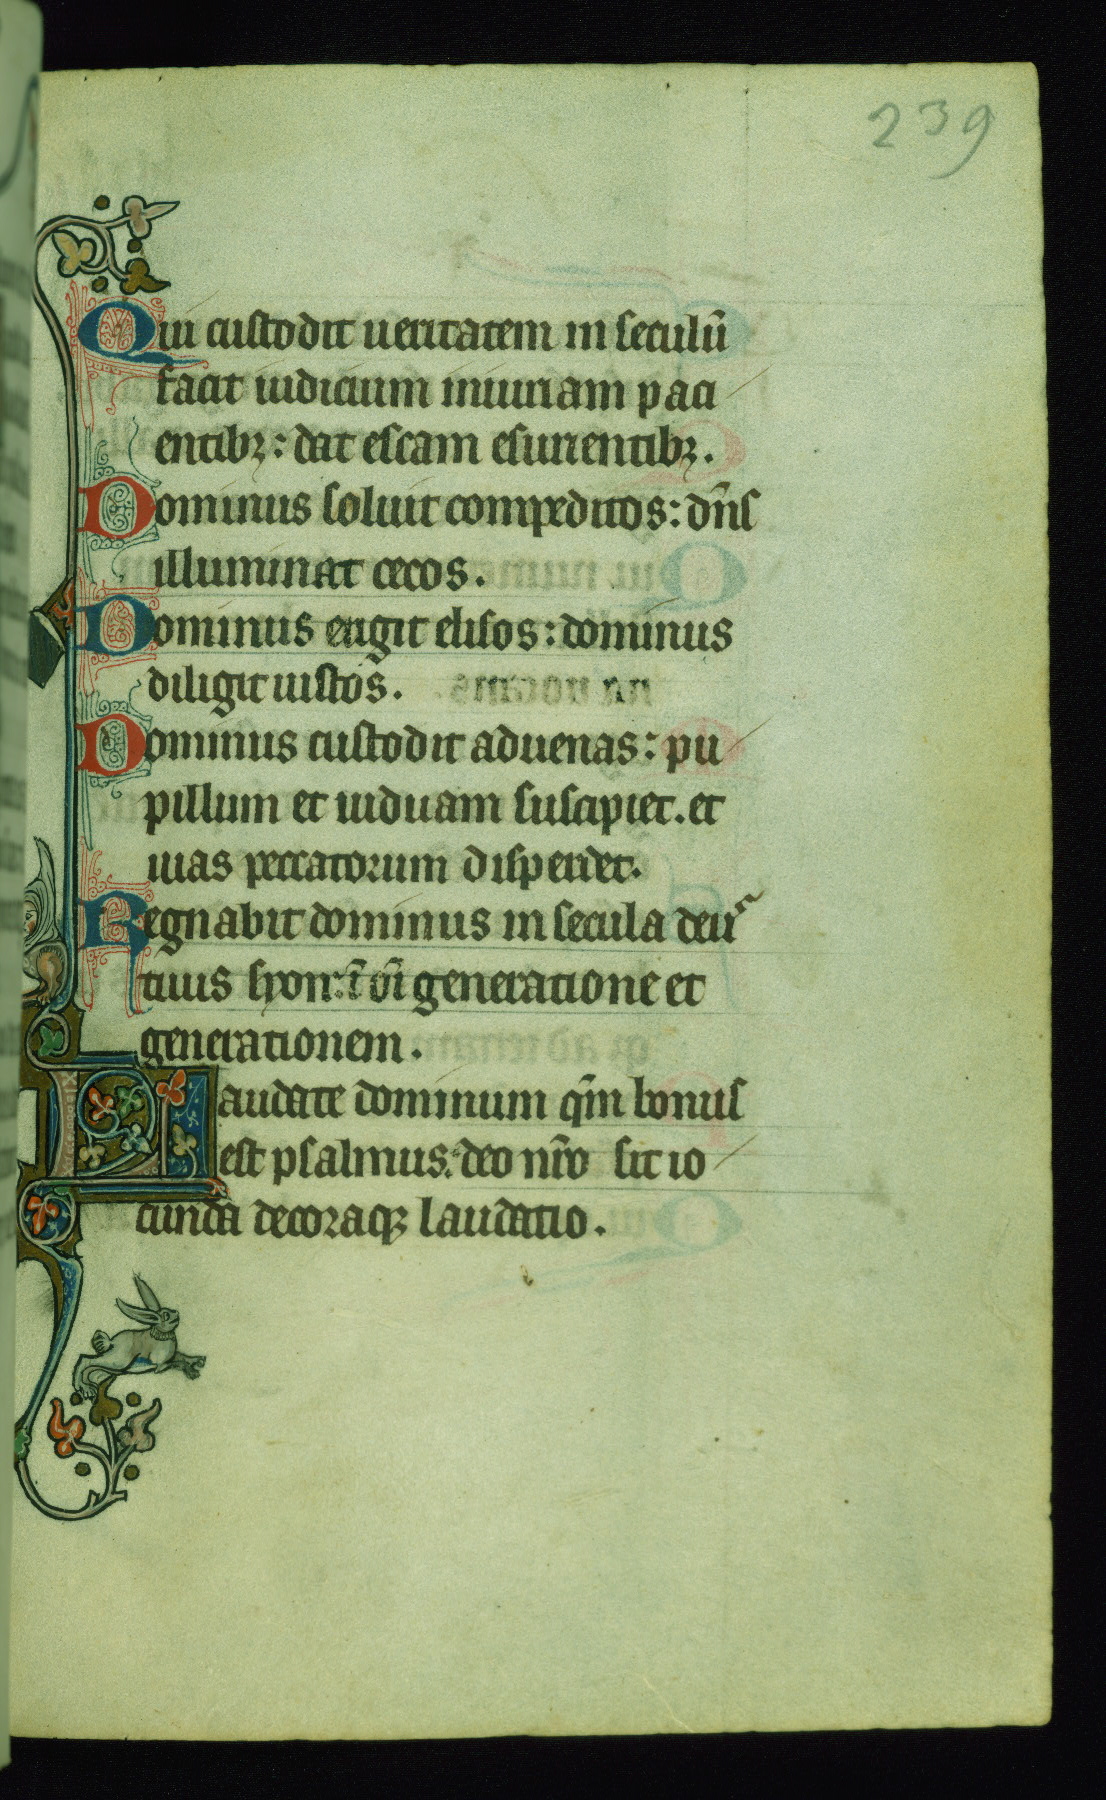 239
Qui custodit ueritatem in seculū
facit iudicium iniuriam paci
entibꝫ: dat escam esurientibꝫ.
Dominus soluit compeditos: dn̄s
illuminat cecos.
Dominus erigit elisos: dominus
diligit iustos.
Dominus custodit aduenas: pu
pillum et uiduam suscipiet. et
uias peccatorum disperdet.
Regnabit dominus in secula deuˢ
tuus syon: ī oī generatione et
generationem.
Laudate dominum qm̄ bonus
est psalmus: deo nr̄o sit io
cunda decoraqꝫ laudatio.